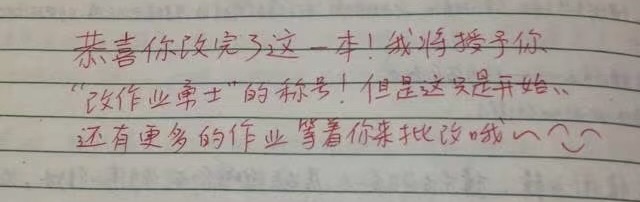 恭喜你改完了这一本！我将授予你
“改作业勇士”的称号！但是这只是开始、、
还有更多的作业等着你来批改哦～